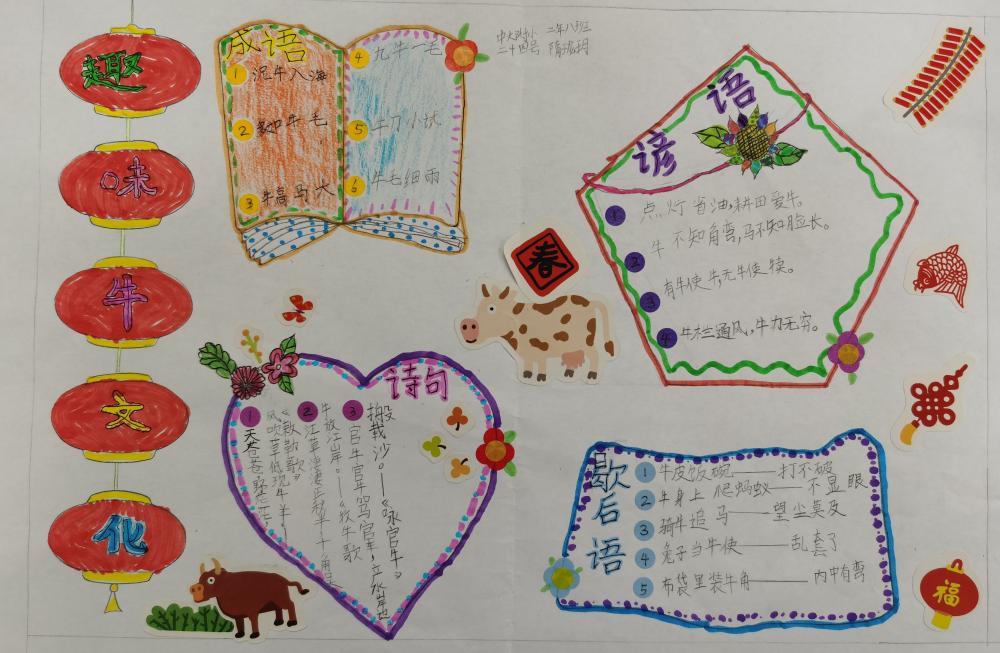 趣
味
牛
文
化
成语
1 泥牛入海
2 多如牛毛
3 牛高马大
4 九牛一毛
5 牛刀小试
6 牛毛细雨
二年八班
二十四号
谚语
1 点灯省油,耕田爱牛。
2 牛不知角弯,马不知脸长。
3 有牛使牛,无牛使犊。
4 牛栏通风,牛力无穷。
春
诗句
1 天苍苍野茫茫,
风吹草低现牛羊。
《敕勒歌》
2 江草秋
牛放江岸。——《牧牛歌
3 官牛官牛驾官车,浐水岸边
搬载沙。——《官牛》
歇后语
1 牛皮饭碗——打不破
2 牛身上爬蚂蚁——不显眼
3 骑牛追马——望尘莫及
4 兔子当牛使——乱套了
5 布袋里装牛角——内中有弯
福